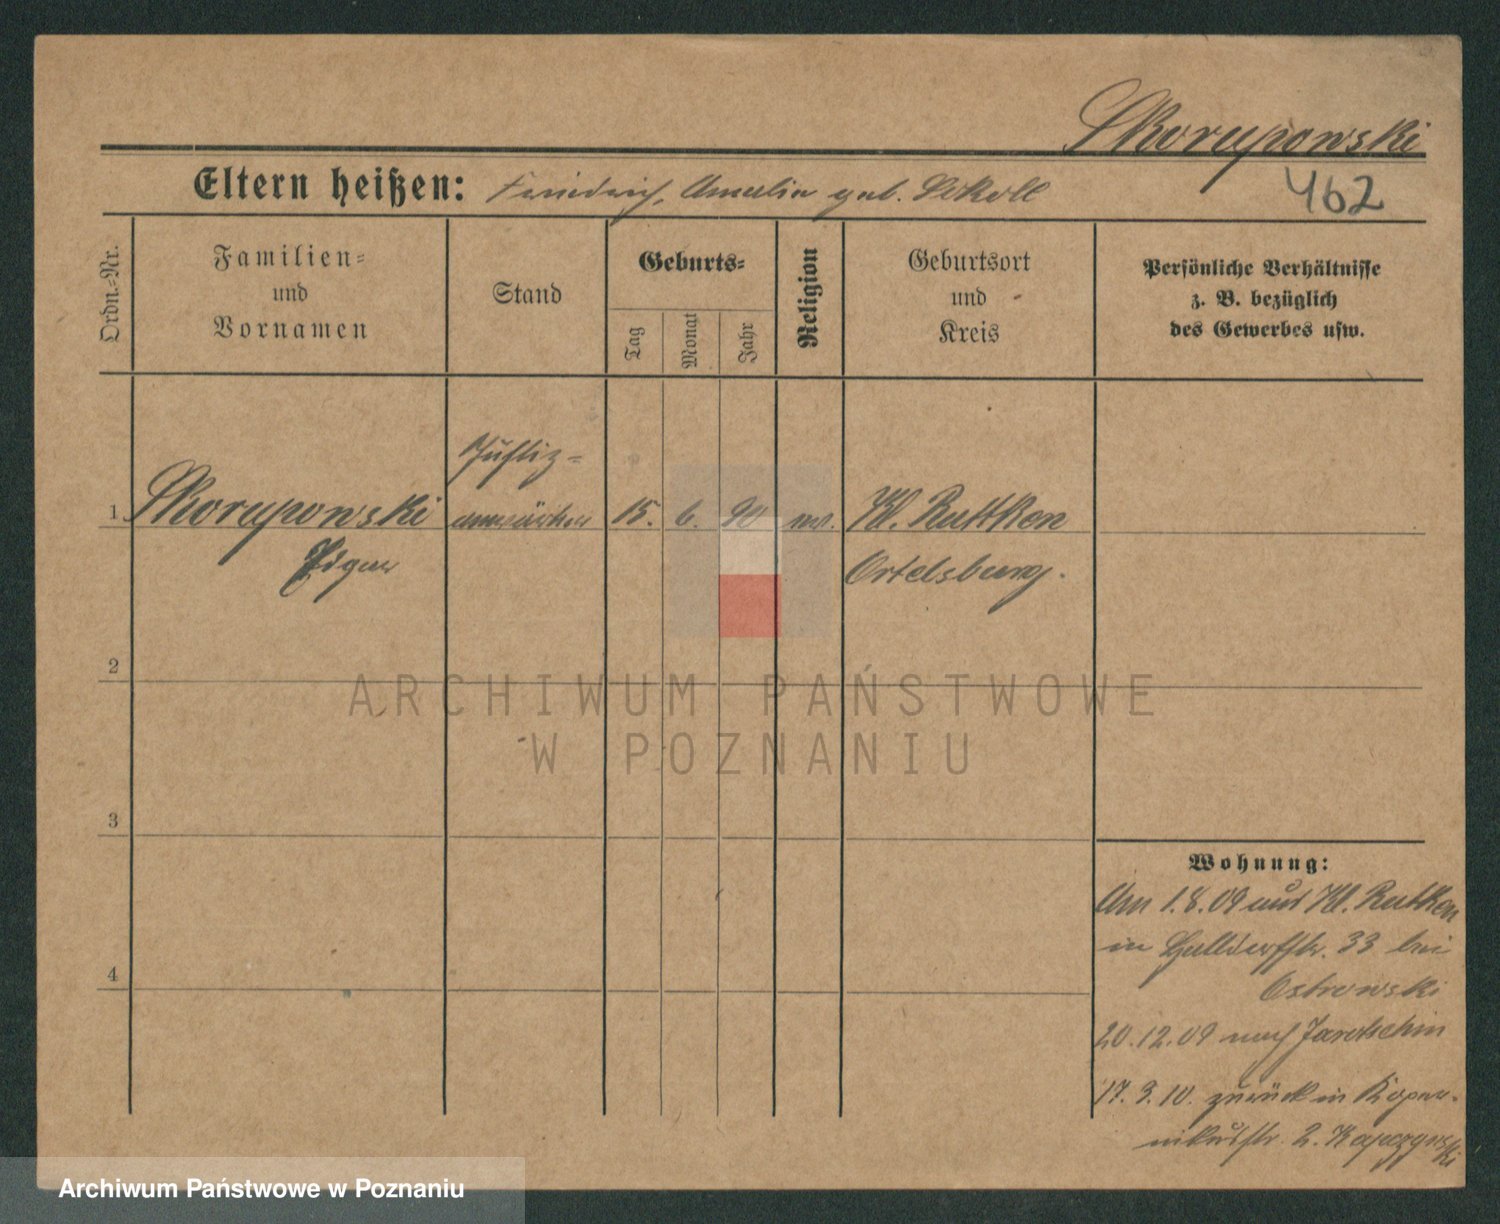 Skorupowski
462
Eltern heißen: Friedrich, Amalia geb. Sekoll
Ordn.-Nr.
Familien-
und
Vornamen
Stand
Geburts-
Tag
Monat
Jahr
Religion
Geburtsort
und
Kreis
Persönliche Verhältnisse
z. B. bezüglich
des Gewerbes usw.
Justiz-
1 Skorupowski anwärter 15. 6. 90 ev. Kl. Ruttken
Edgar Ortelsburg.
2
ARCHIWUM PAŃSTWOWE
W POZNANIU
3
4
Wohnung:
Am 1.8.09 aus Kl. Rutken
in 33 bei
Ostrowski
20.12.09 nach Jarotschin
17.3.10. zurück in Koper-
nikusstr. 2.
Archiwum Państwowe w Poznaniu